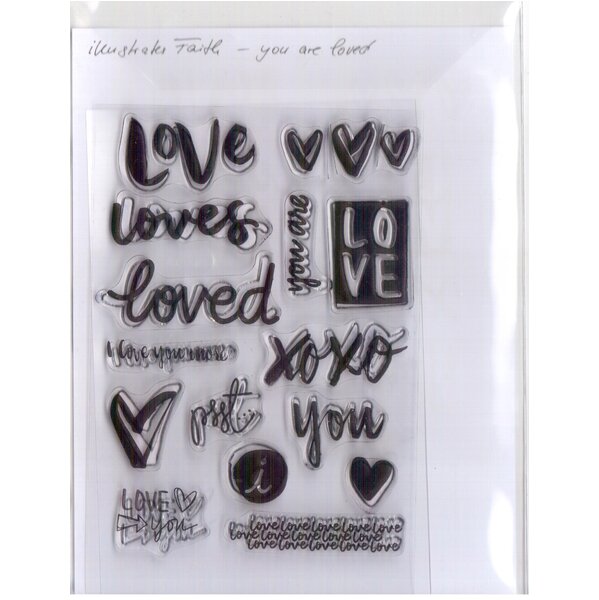 illustrated Faith – you are loved
LOVE
loves
you are
LO
VE
loved
i love you more
xoxo
psst...
you
i
LOVE
you
love love love love love love
love love love love love love
love love love love love love